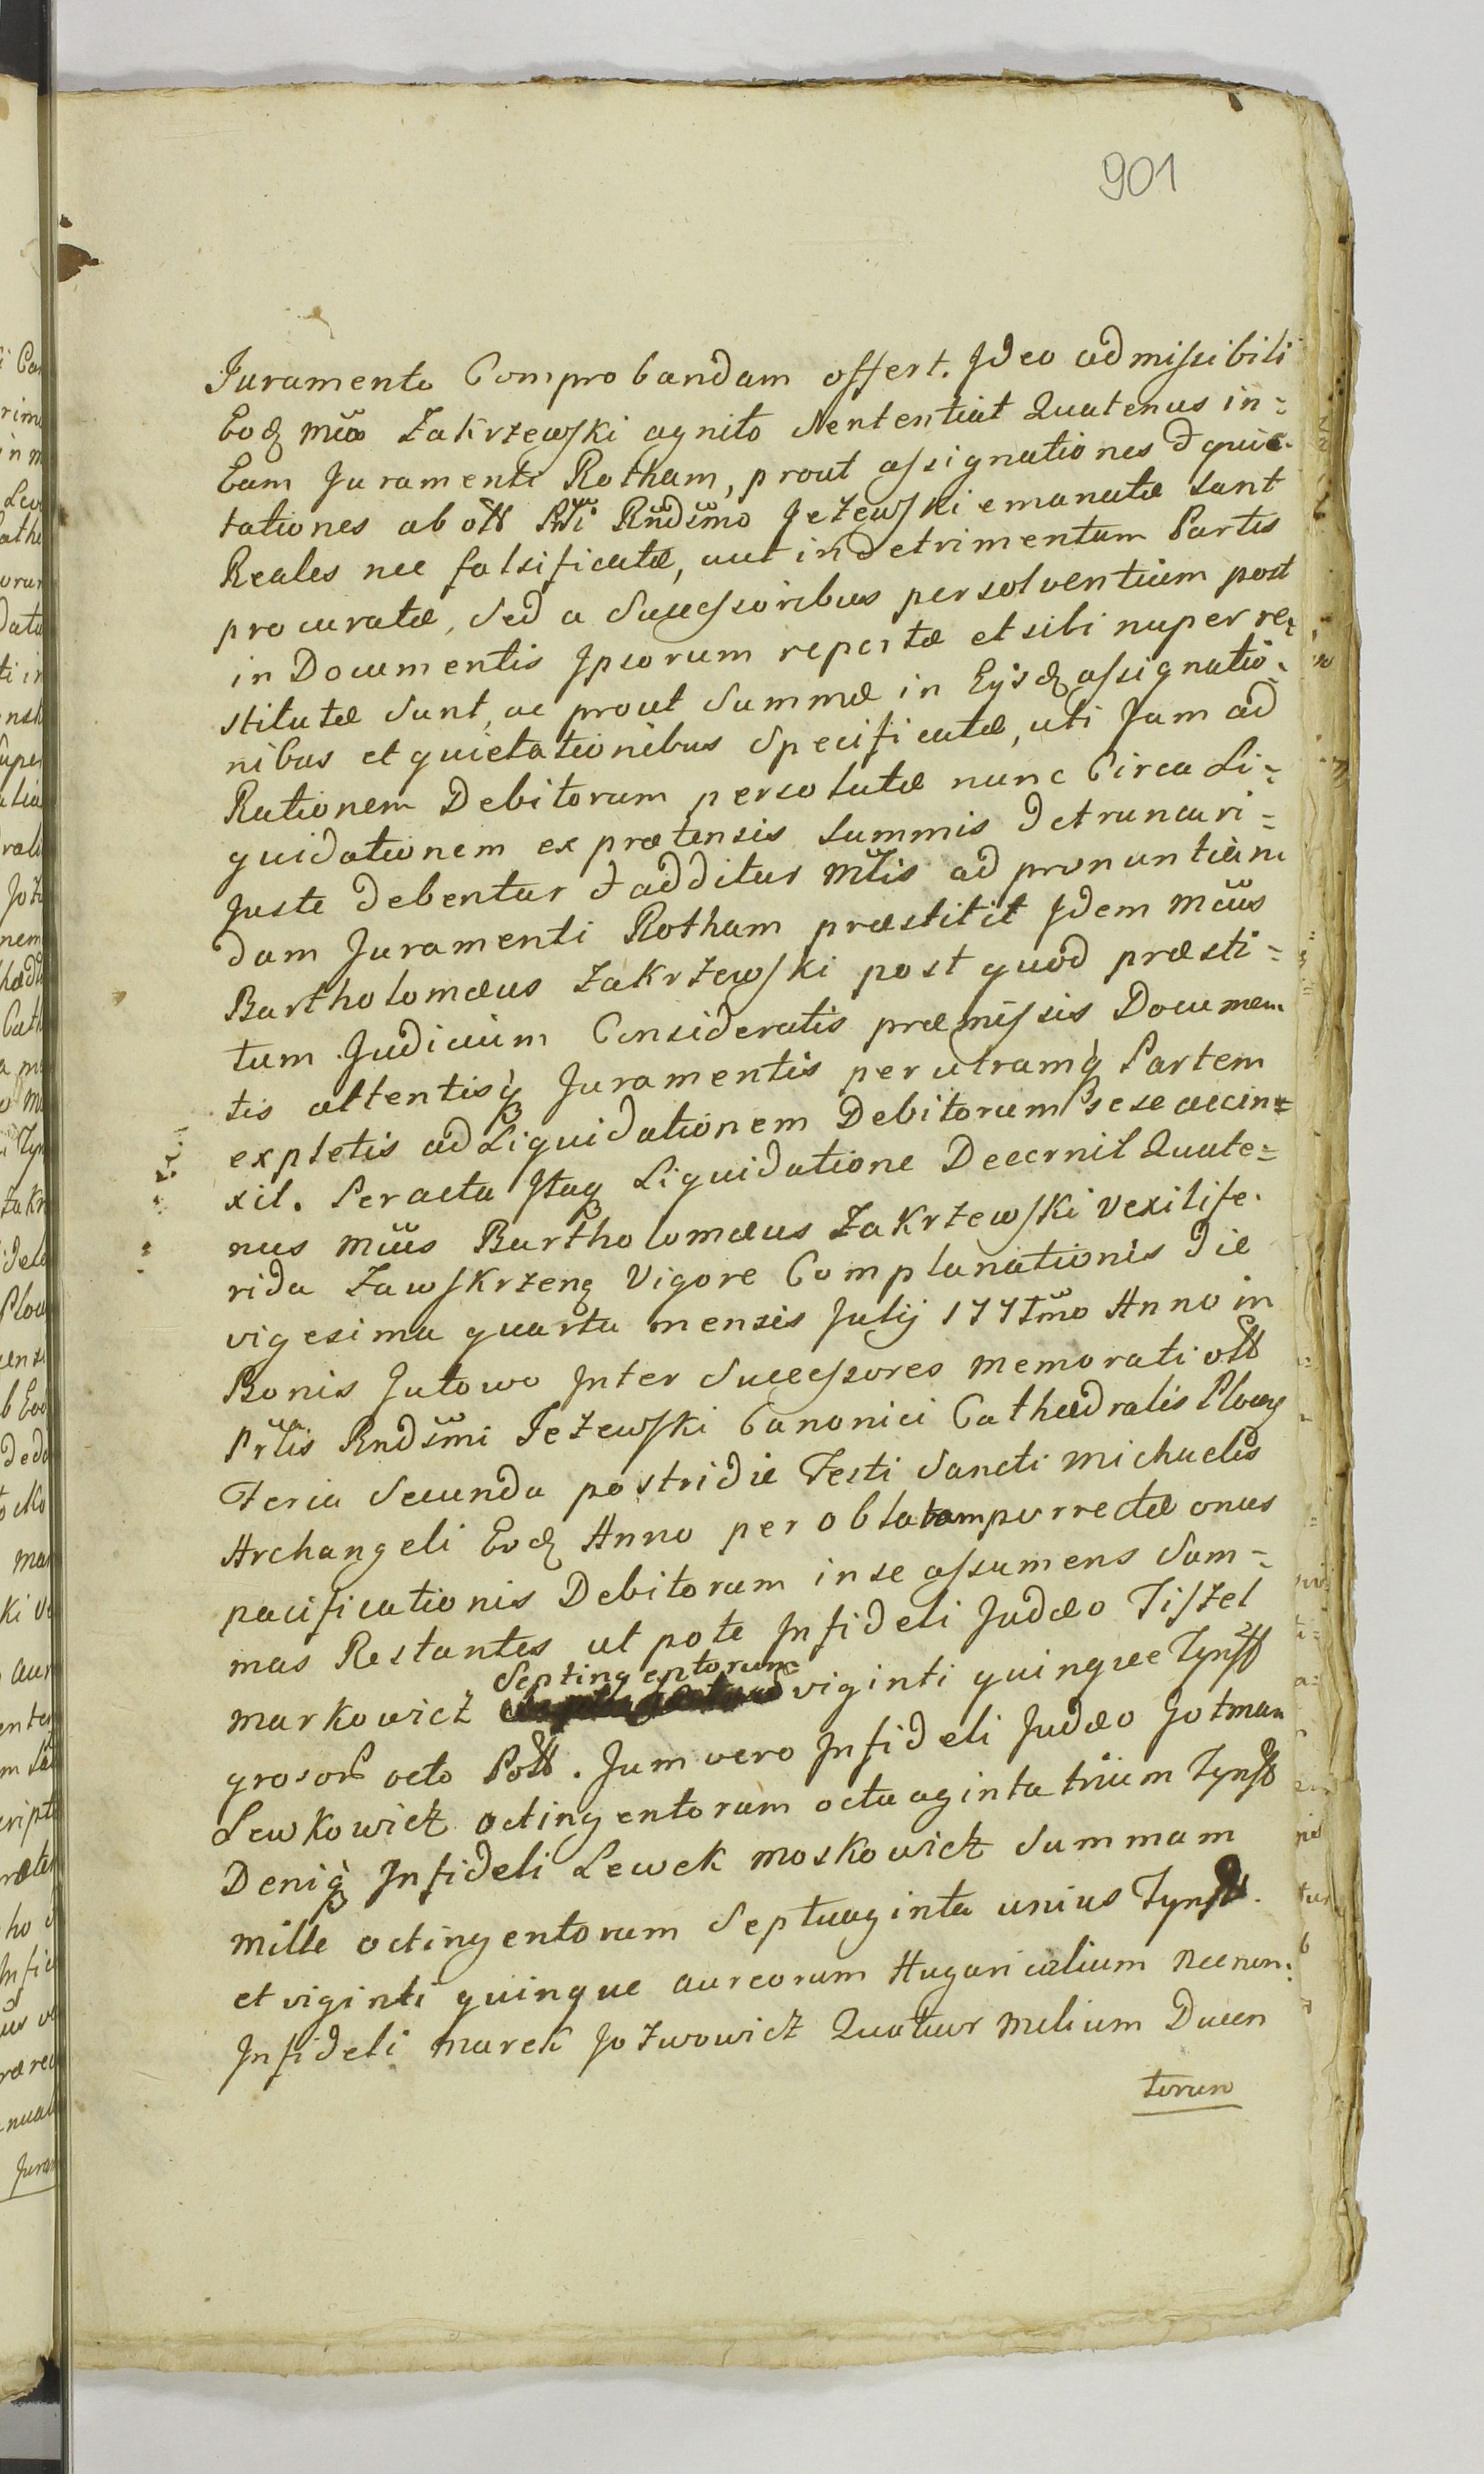 901
Juramento Comprobandam offert. Ideo admissibili
Eodq Mco Zakrzewski agnito Sententiat Quatenus in=
Eam Juramenti Rotham, prout assignationes & quie-
tationes ab olt Rndssmo Jezewski emanatæ sunt
Reales nec falsificatæ, aut in detrimentum Partis
procuratæ, Sed a Successoribus persolventium post
in Documentis Ipsorum repertæ et sibi nuper re=
stitutæ sunt, ac prout Summæ in Eijsdq assignatio=
nibus et quietationibus Specificatæ, uti Jam ad
Rationem Debitorum persolutæ nunc Circa Li=
quidationem ex prætensis Summis detruncari=
Juste debentur & additur Mtis ad pronuntian
dam Juramenti Rotham præstitit Idem Mcus
Bartholomæus Zakrzewski post quod præsti=
tum Judicium Consideratis præmissis Documen
tis attentisq Juramentis per utramq Partem
expletis ad Liquidationem Debitorum sese accin=
xit. Peracta Itaq Liquidatione Decernit Quate=
nus Mcus Bartholomæus Zakrzewski Vexilife.
rida Zawskrzenq Vigore Complanationis die
vigesima quarta mensis Julij 177Imo Anno in
Bonis Jutowo Inter Successores memorati olt
Prtis Rndssmi Jezewski Canonici Cathedralis Plocq
Feria Secunda postridie Festi Sancti Michaelis
Archangeli Eodq Anno per oblatam porrectæ onus
pacificationis Debitorum in se assumens Sum=
mas Restantes ut pote Infideli Judæo Jiszel
Septingentorum
Markowicz viginti quinque Tynff
grosor octo Poll. Jam vero Infideli Judæo Gotman
Lewkowicz octingentorum octuaginta trium Tynff
Deniq Infideli Lewek Moskowicz Summam
Mille octingentorum Septuaginta unius Tynff.
et viginti quinque aureorum Hugaricalium necnon:
Infideli Marek Jozwowicz Quatuor Milium Ducen
torum